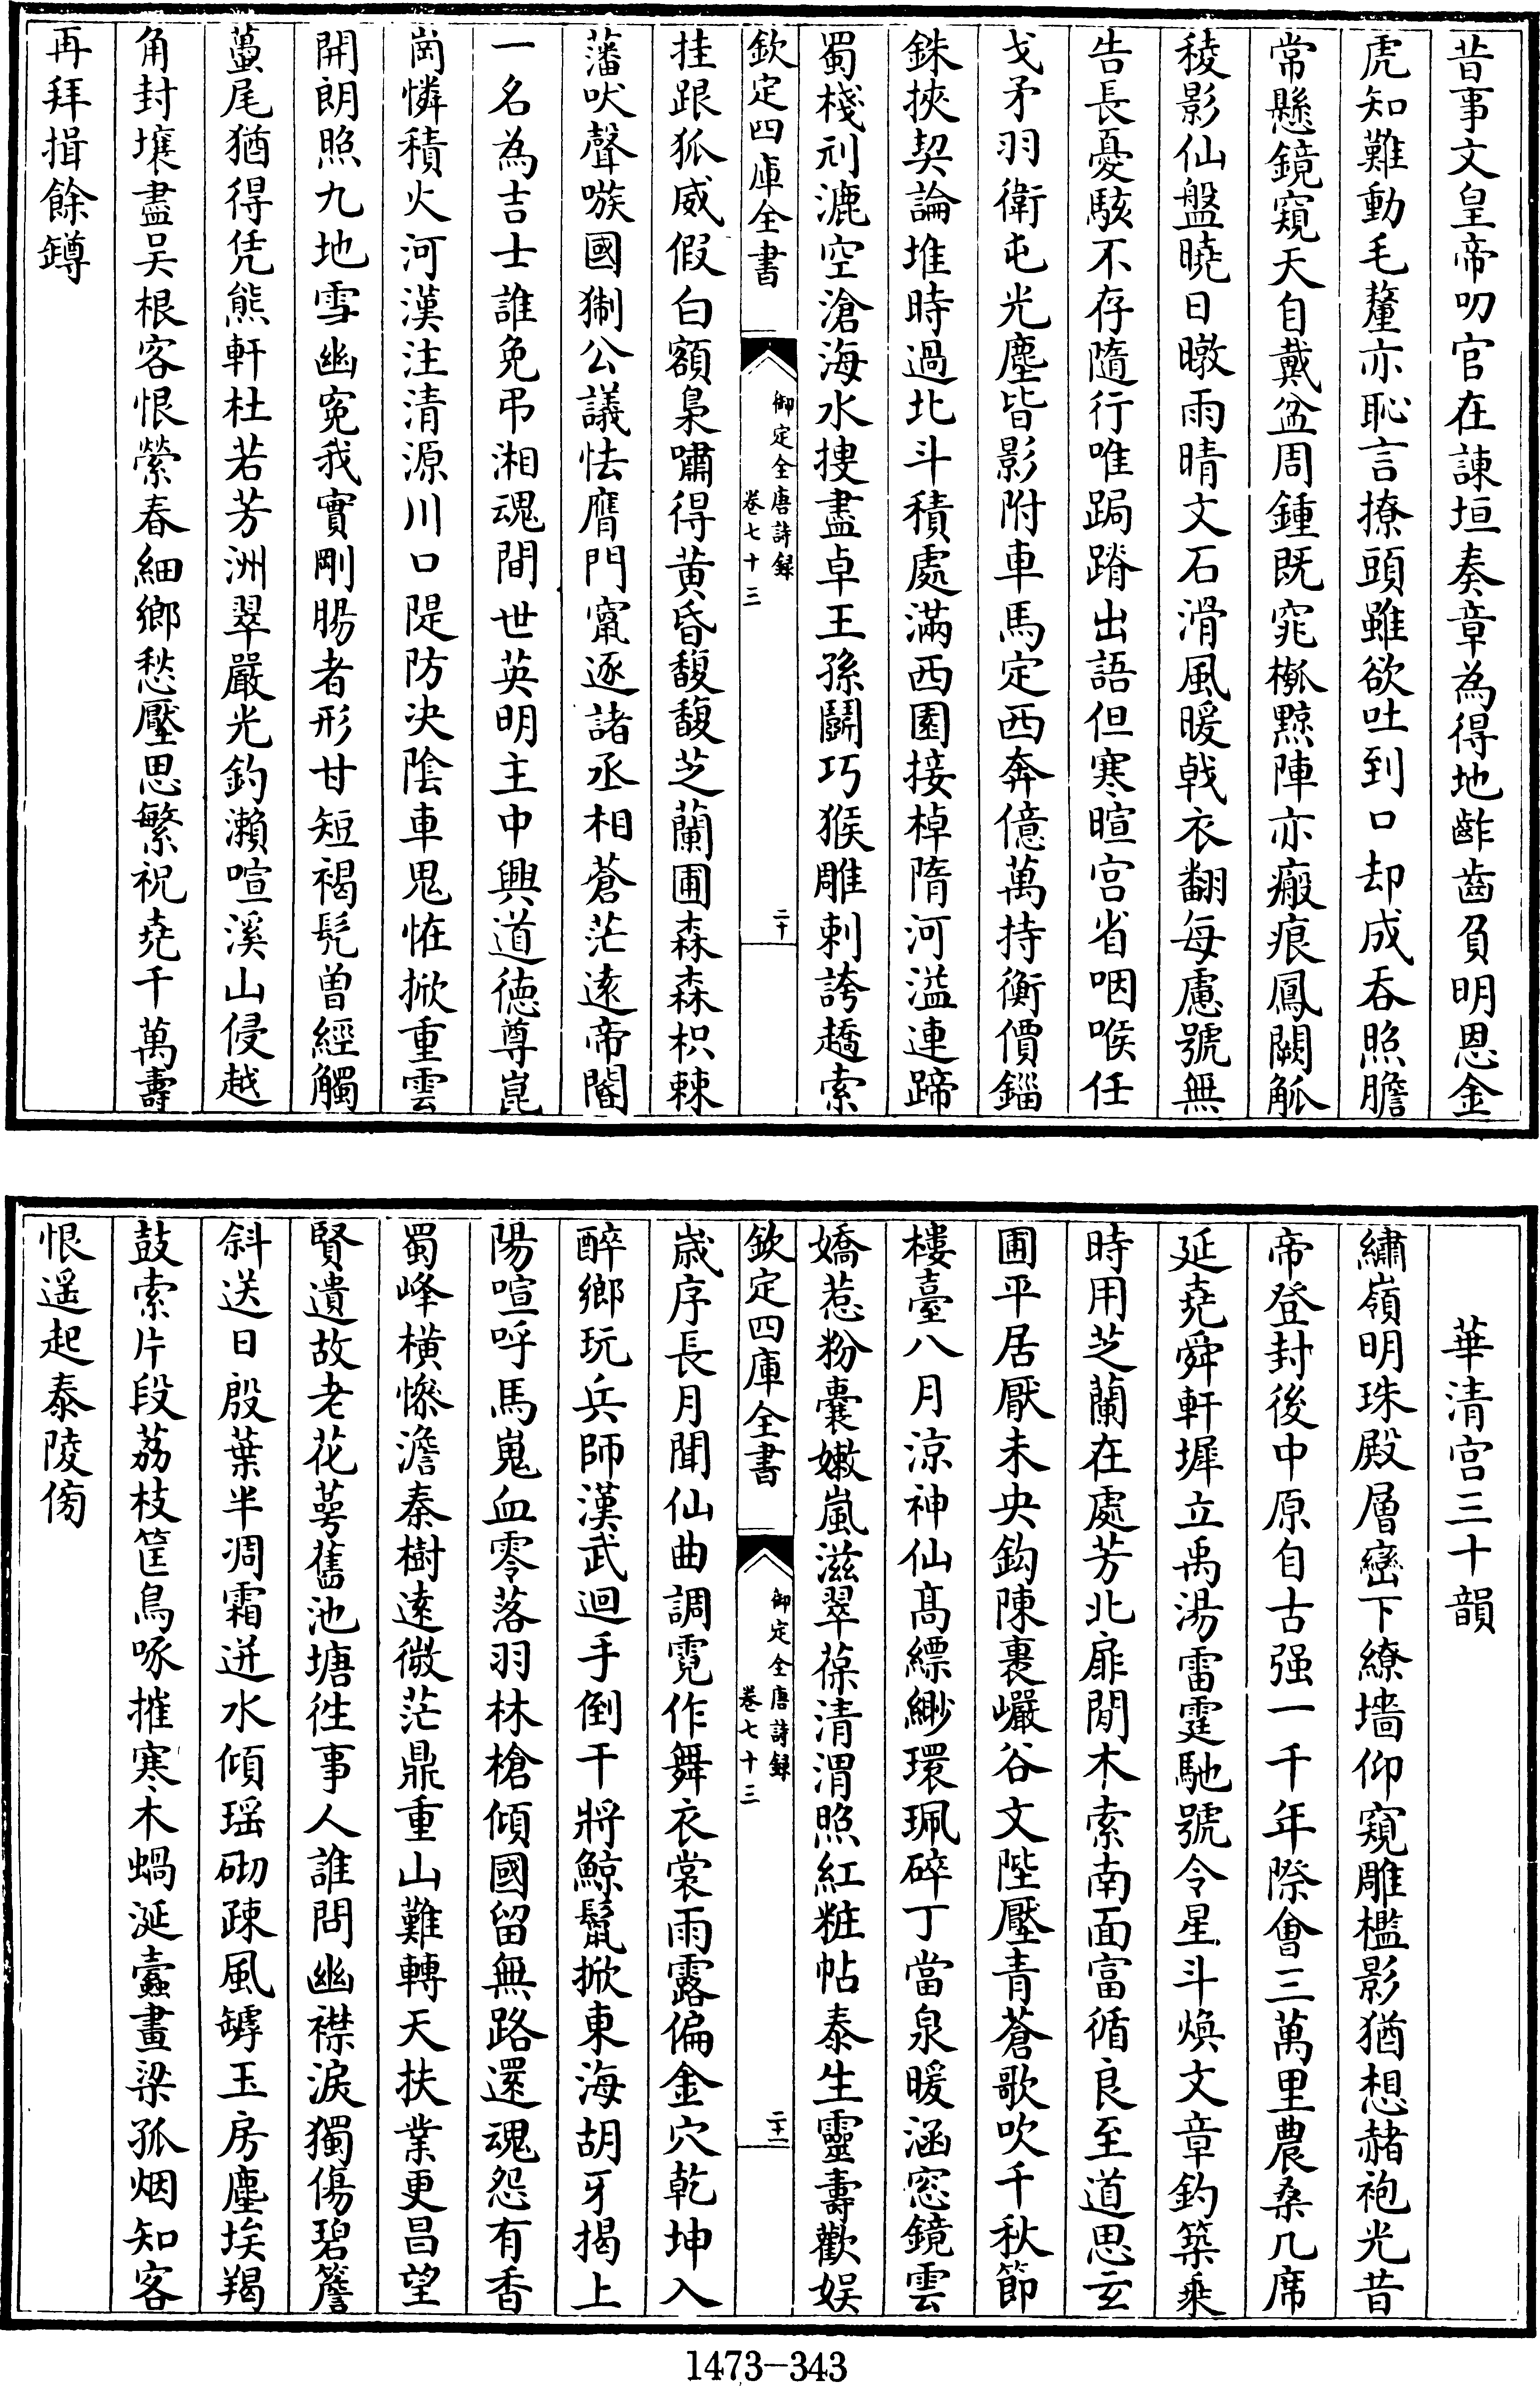 昔事文皇帝叨官在諫垣奏章為得地齚齒負明恩金
虎知難動毛釐亦恥言撩頭雖欲吐到口却成吞照膽
常懸鏡窺天自戴盆周鍾既窕槬黥陣亦瘢痕鳳闕觚
稜影仙盤曉日暾雨晴文石滑風暖㦸衣翻每慮號無
告長憂駭不存隨行唯跼蹐出語但寒暄宮省咽喉任
戈矛羽衛屯光塵皆影附車馬定西奔億萬持衡價錙
銖挾契論堆時過北斗積處滿西園接棹隋河溢連蹄
蜀棧刓漉空滄海水搜盡卓王孫鬬巧猴雕刺誇趫索
欽定四庫全書
御定全唐詩録
卷七十三
二十
挂跟狐威假白額梟嘯得黃昏馥馥芝蘭圃森森枳棘
藩吠聲嗾國猘公議怯膺門竄逐諸丞相蒼茫遠帝閽
一名為吉士誰免弔湘魂間世英明主中興道德尊崑
崗憐積火河漢注清源川口隄防決陰車鬼恠掀重雲
開朗照九地雪幽寃我實剛腸者形甘短褐髠曾經觸
蠆尾猶得凭熊軒杜若芳洲翠嚴光釣瀨喧溪山侵越
角封壤盡吳根客恨縈春細鄉愁壓思繁祝堯千萬壽
再拜揖餘罇
華清宮三十韻
繡嶺明珠殿層巒下繚墻仰窺雕檻影猶想赭袍光昔
帝登封後中原自古强一千年際會三萬里農桑几席
延堯舜軒墀立禹湯雷霆馳號令星斗煥文章釣築乘
時用芝蘭在處芳北扉閒木索南面富循良至道思玄
圃平居厭未央鈎陳裹巖谷文陛壓青蒼歌吹千秋節
樓臺八月涼神仙髙縹緲環珮碎丁當泉暖涵窓鏡雲
嬌惹粉囊嫩嵐滋翠葆清渭照紅粧帖泰生靈壽歡娱
欽定四庫全書
御定全唐詩録
卷七十三
二十一
歲序長月聞仙曲調霓作舞衣裳雨露偏金穴乾坤入
醉鄉玩兵師漢武迴手倒干將鯨鬣掀東海胡牙揭上
陽喧呼馬嵬血零落羽林槍傾國留無路還魂怨有香
蜀峰横慘澹秦樹逺微茫鼎重山難轉天扶業更昌望
賢遺故老花萼舊池塘徃事人誰問幽襟淚獨傷碧簷
斜送日殷葉半凋霜迸水傾瑶砌疎風罅玉房塵埃羯
鼓索片段荔枝筐鳥啄摧寒木蝸涎蠧畫梁孤烟知客
恨遥起泰陵傍
1473-343